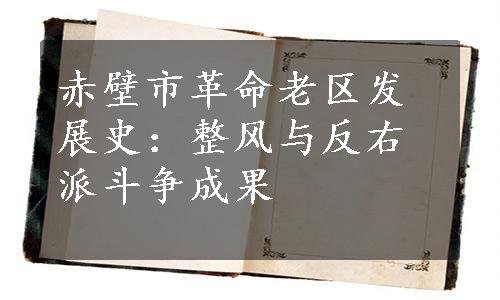 赤壁市革命老区发
展史：整风与反右
派斗争成果